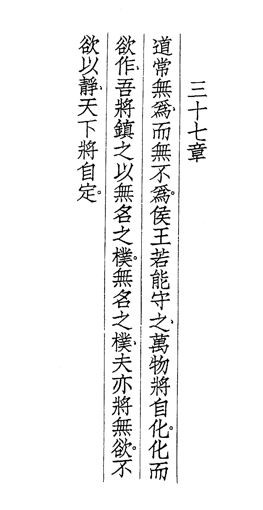 三十七章
道常無爲、而無不爲。侯王若能守之、萬物將自化。化而
欲作、吾將鎮之以無名之樸。無名之樸、夫亦將無欲。不
欲以靜、天下將自定。